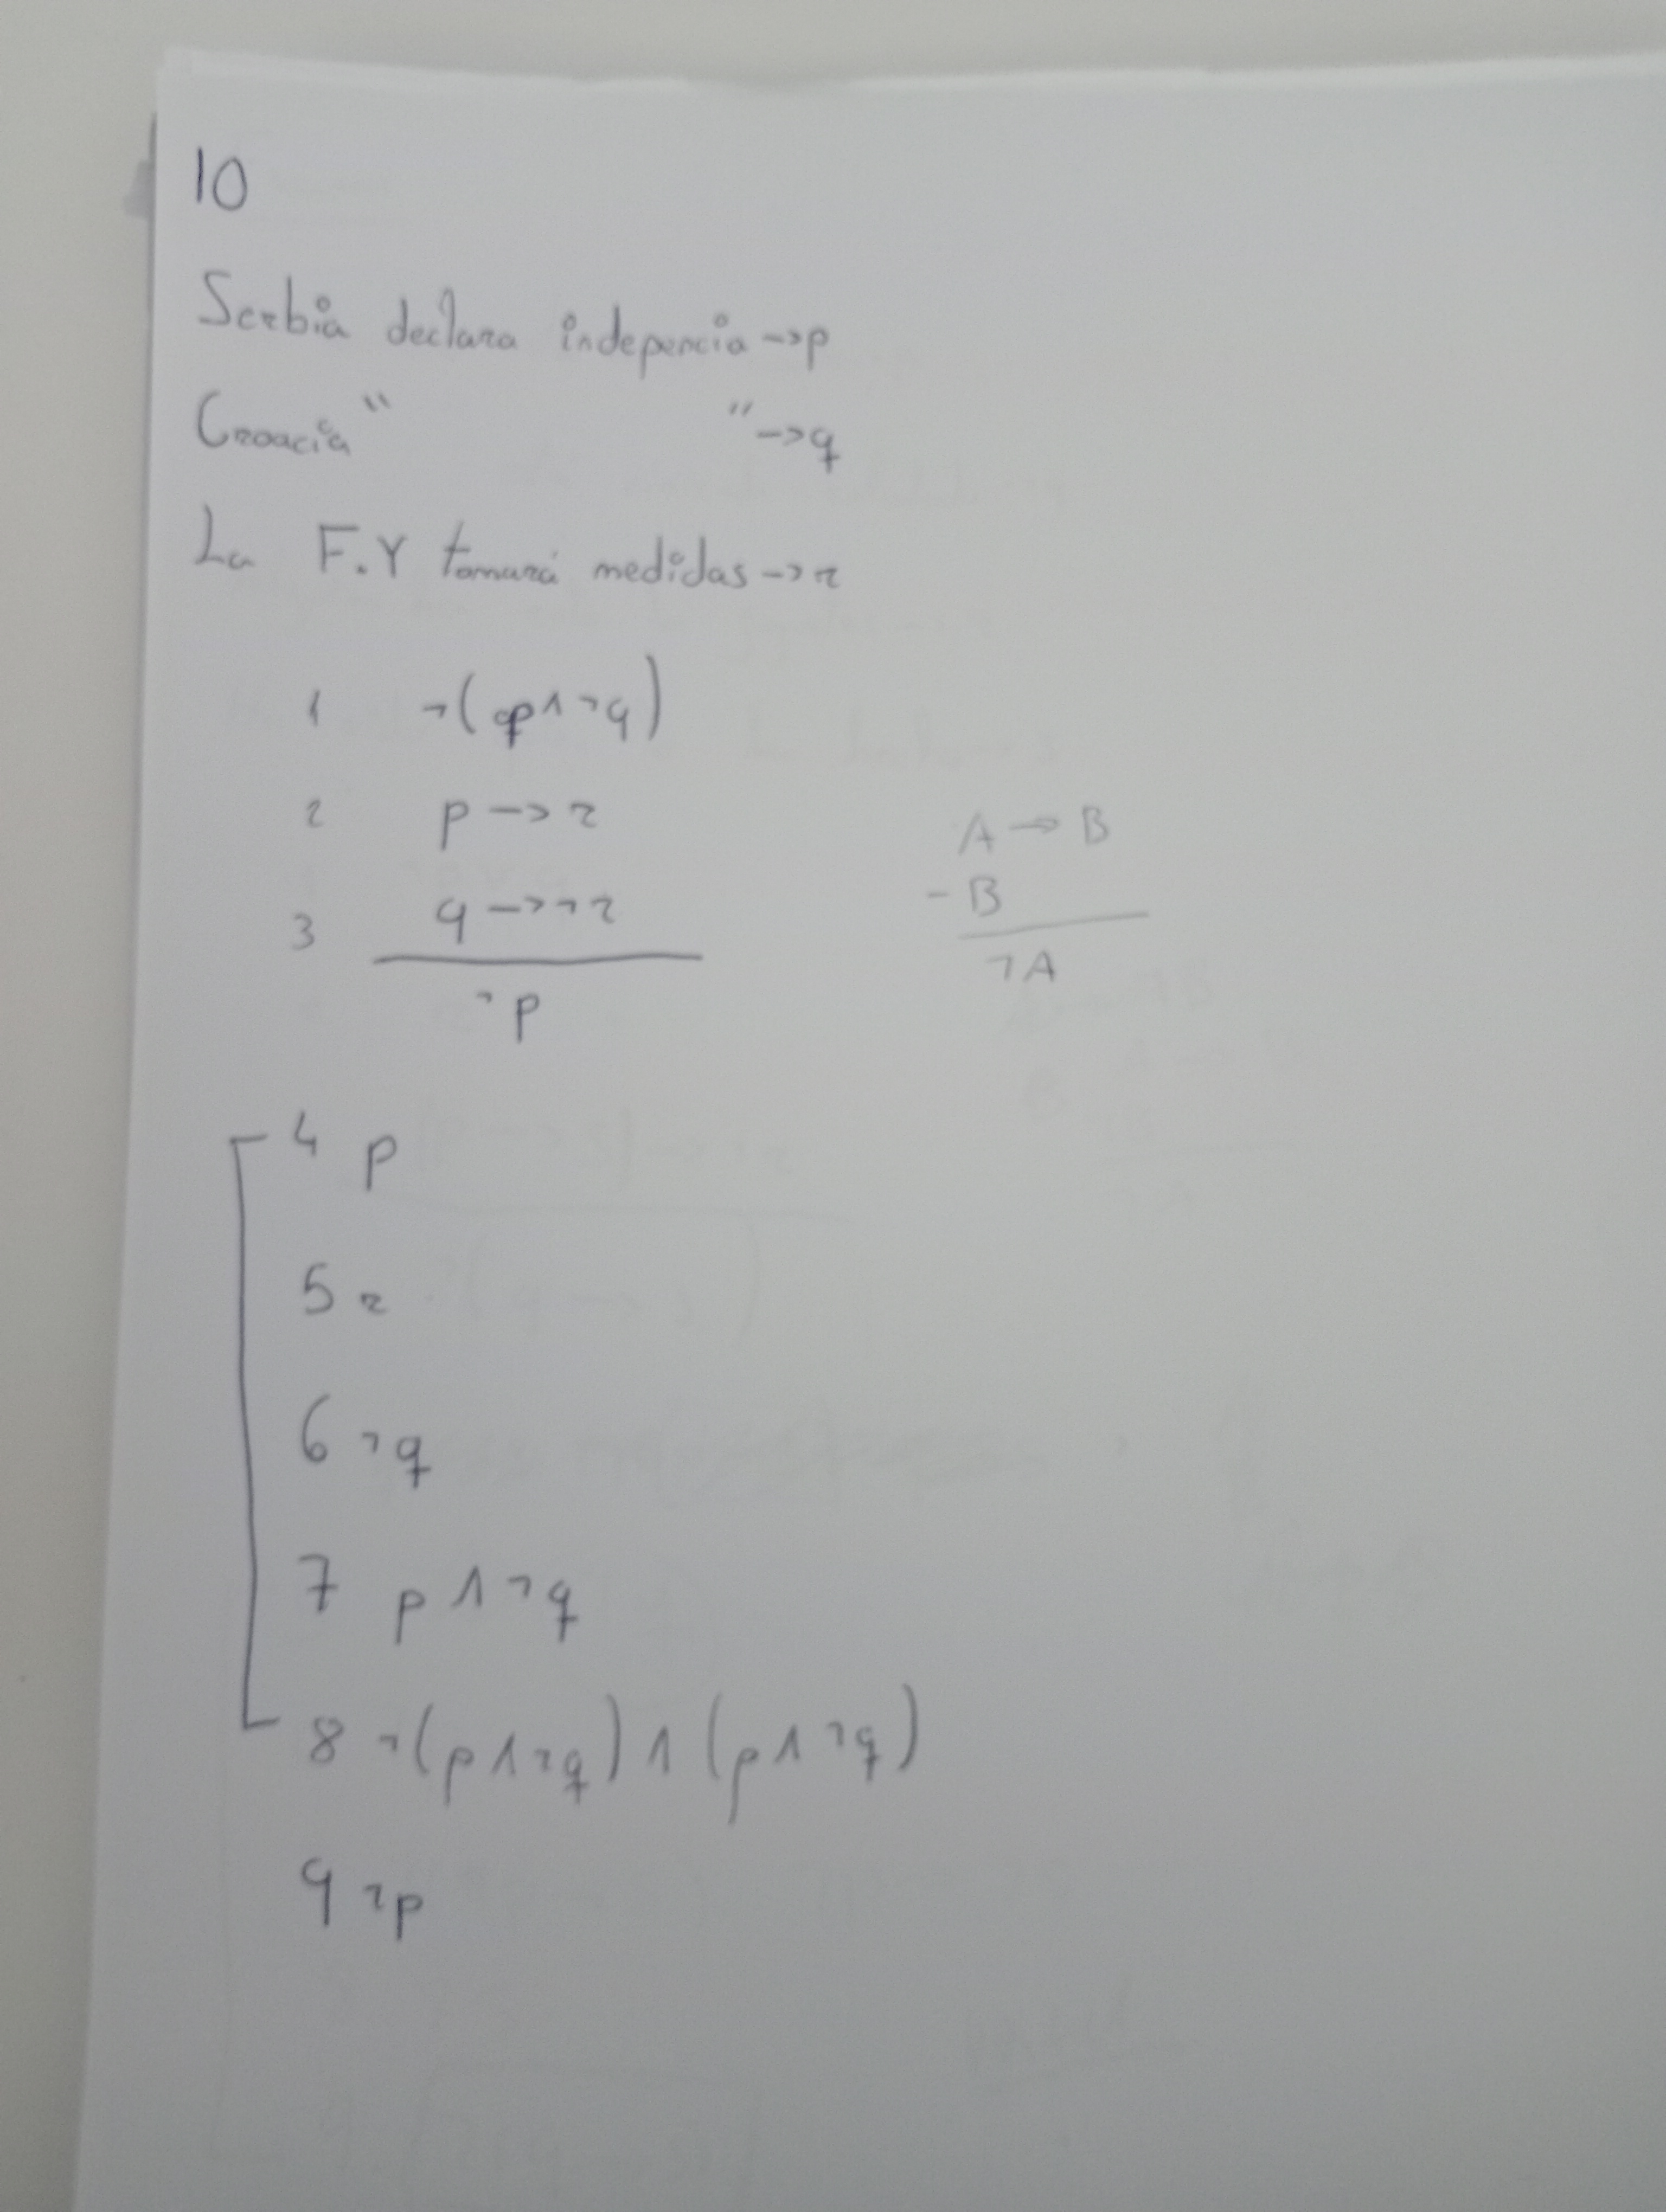 10
Serbia declara indepencia -> p
Croacia " " -> q
La F.Y tomará medidas -> r
1 ¬(p ∧ ¬q)
2 p -> r
3 q -> ¬r
¬p
A -> B
- B
¬A
4 p
5 r
6 ¬q
7 p ∧ ¬q
8 ¬(p ∧ ¬q) ∧ (p ∧ ¬q)
9 ¬p